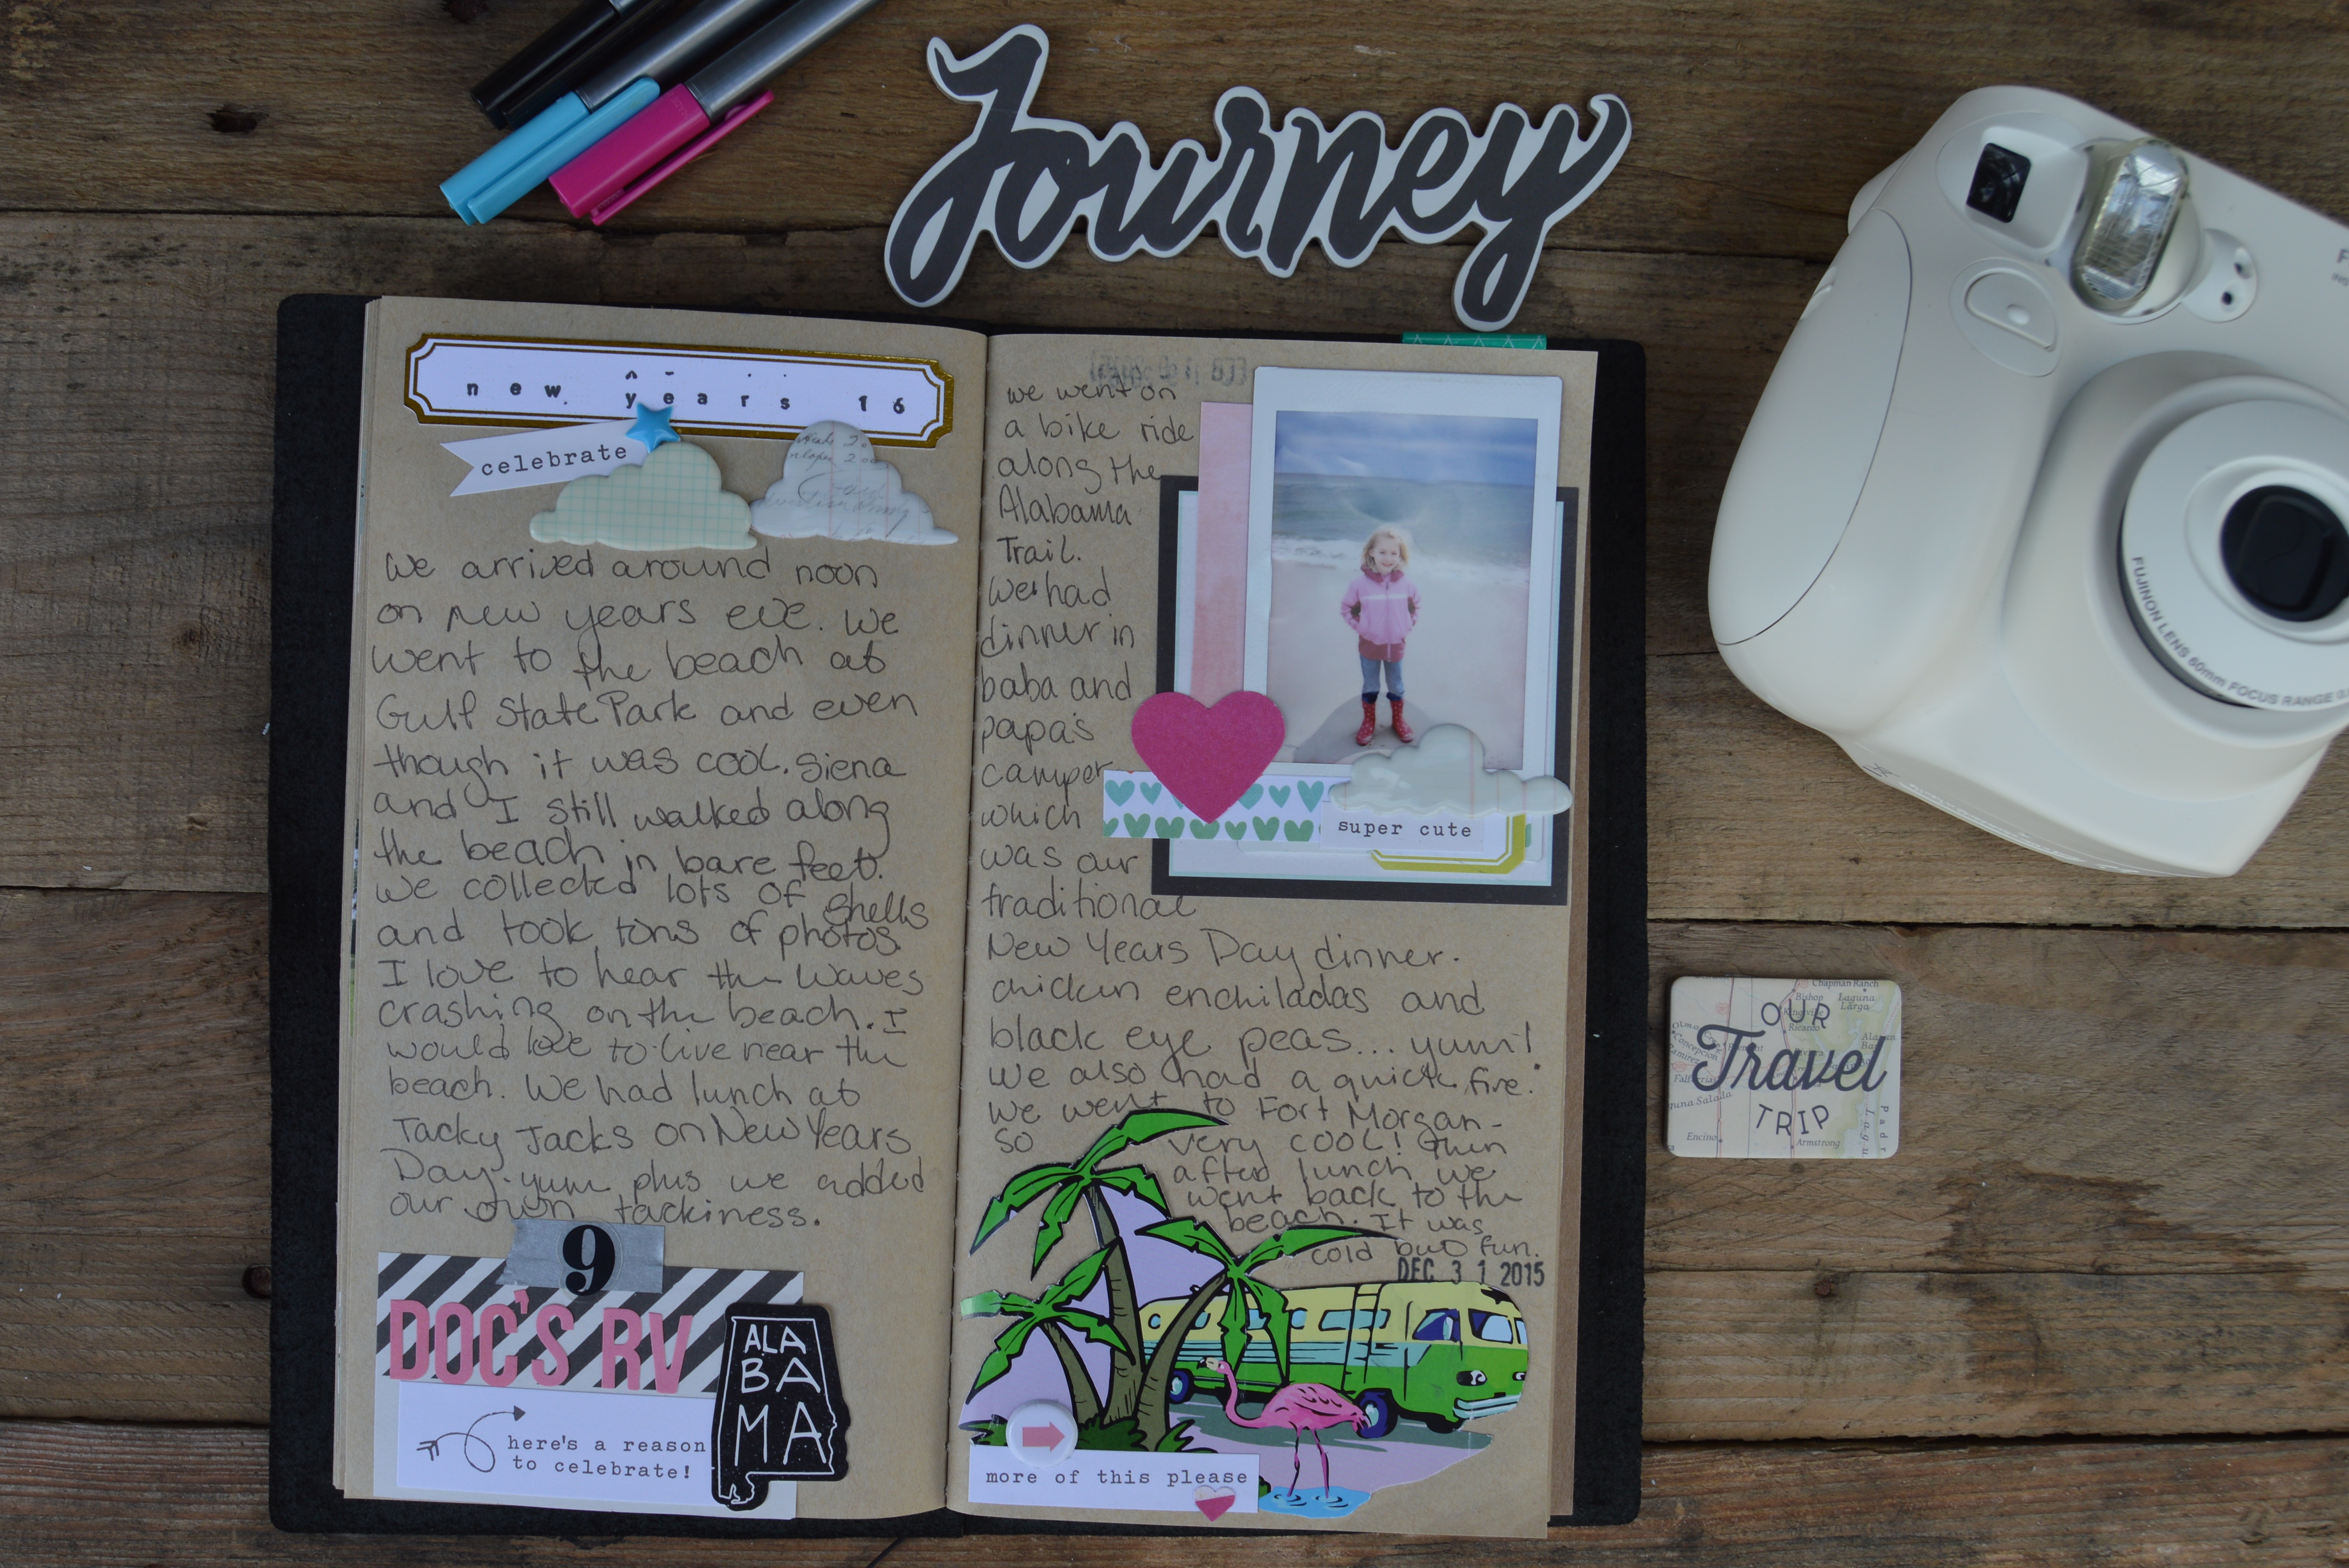 Journey
new years 16
celebrate
we arrived around noon
on new years eve. We
went to the beach at
Gulf State Park and even
though it was cool. Siena
and I still walked along
the beach in bare feet.
we collected lots of shells
and took tons of photos.
I love to hear the waves
crashing on the beach. I
would love to live near the
beach. We had lunch at
Tacky Jacks on New Years
Day. yum plus we added
our own tackiness.
9
DOC'S RV
ALA
BA
MA
here's a reason
to celebrate!
we went on
a bike ride
along the
Alabama
Trail.
We had
dinner in
baba and
papa's
camper
which
was our
traditional
New Years Day dinner.
chicken enchiladas and
black eye peas... yum!
We also had a quick fire.
We went to Fort Morgan-
so very cool! Then
after lunch we
went back to the
beach. It was
cold but fun.
DEC 31 2015
super cute
more of this please
FUJINON LENS 60mm FOCUS RANGE
Chapman Ranch
Bishop
Laguna
Larga
Kingsville
Ricardo
Concepcion
OUR
Travel
TRIP
Encino
Armstrong